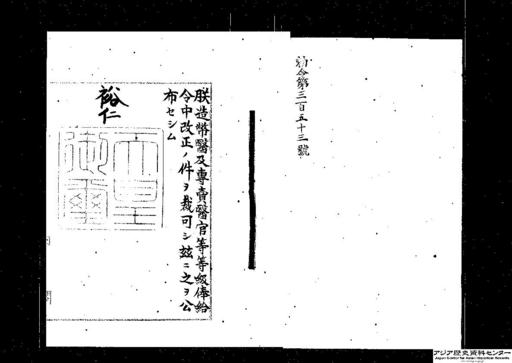 勅令第三百五十三號
朕造幣醫及專賣醫官等等級俸給
令中改正ノ件ヲ裁可シ玆ニ之ヲ公
布セシム
裕仁
天皇御璽
アジア歴史資料センター
Japan Center for Asian Historical Records